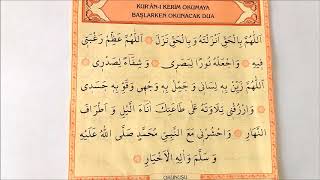 KUR'ÂN-I KERİM OKUMAYA
BAŞLARKEN OKUNACAK DUA
اَللّٰهُمَّ بِالْحَقِّ اَنْزَلْتَهُ وَ بِالْحَقِّ نَزَلَ ۞ اَللّٰهُمَّ عَظِّمْ رَغْبَتِى
فِيهِ ۞ وَ اجْعَلْهُ نُورًا لِبَصَرِى ۞ وَ شِفَاءً لِصَدْرِى ۞
اَللّٰهُمَّ زَيِّنْ بِهِ لِسَانِى وَ جَمِّلْ بِهِ وَجْهِى وَ قَوِّ بِهِ جَسَدِى
وَ ارْزُقْنِى تِلَاوَتَهُ عَلٰى طَاعَتِكَ اٰنَاءَ الَّيْلِ وَ اَطْرَافَ
النَّهَارِ ۞ وَ احْشُرْنِى مَعَ النَّبِىِّ مُحَمَّدٍ صَلَّى اللّٰهُ عَلَيْهِ
وَ سَلَّمَ وَ اٰلِهِ الْاَخْيَارِ ۞
OKUNUŞU